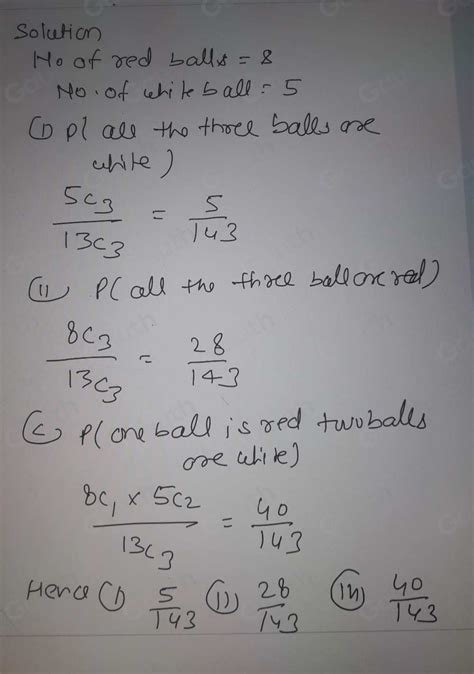 Solution
No of red balls = 8
No. of white ball = 5
(I) P( all the three balls are
white)
5C3 / 13C3 = 5 / 143
(II) P( all the three ball are red)
8C3 / 13C3 = 28 / 143
(C) P( one ball is red two balls
are white)
8C1 × 5C2 / 13C3 = 40 / 143
Hence (I) 5/143 (II) 28/143 (III) 40/143